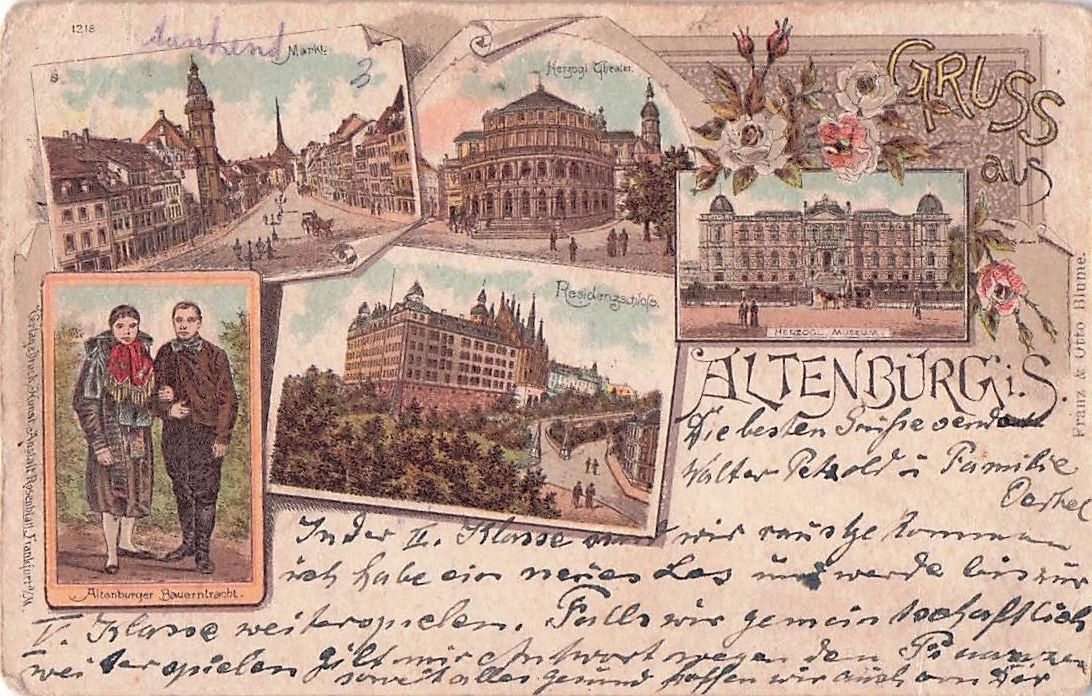 1218
Markt.
3
Herzogl. Theater.
GRUSS
aus
HERZOGL. MUSEUM.
Residenzschloß.
ALTENBURG i. S.
Altenburger Bauerntracht.
Franz & Otto Blume.
Verlag, Druck, Kunst-Anstalt Rosenblatt, Frankfurt a/M.
Die besten Grüße sendet
Walter Petzold u Familie
Oertel
In der II. Klasse sind wir rausgekommen
ich habe ein neues Los und werde bis zur
V. Klasse weiterspielen. Falls wir gemeinschaftlich
weiterspielen gilt mir Antwort wegen den
soweit alles gesund hoffen wir auch von Dir